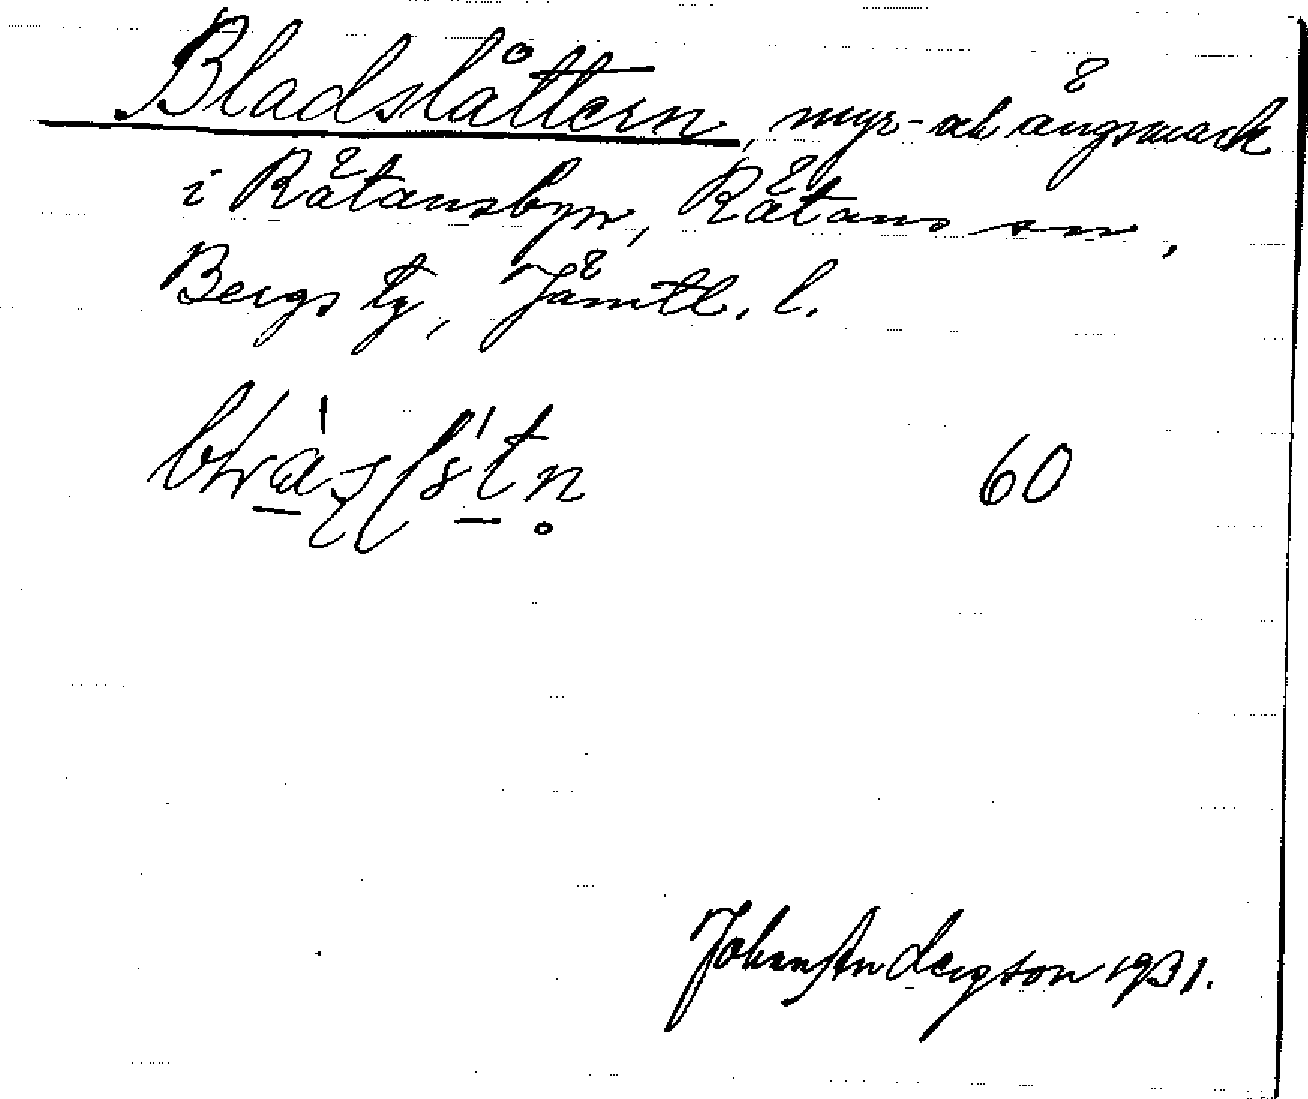 Bladslåttern, myr- och ängsmark
i Rätansbyn, Rätans sn,
Bergs tg, Jämtl. l.
60
Johan Andersson 1931.